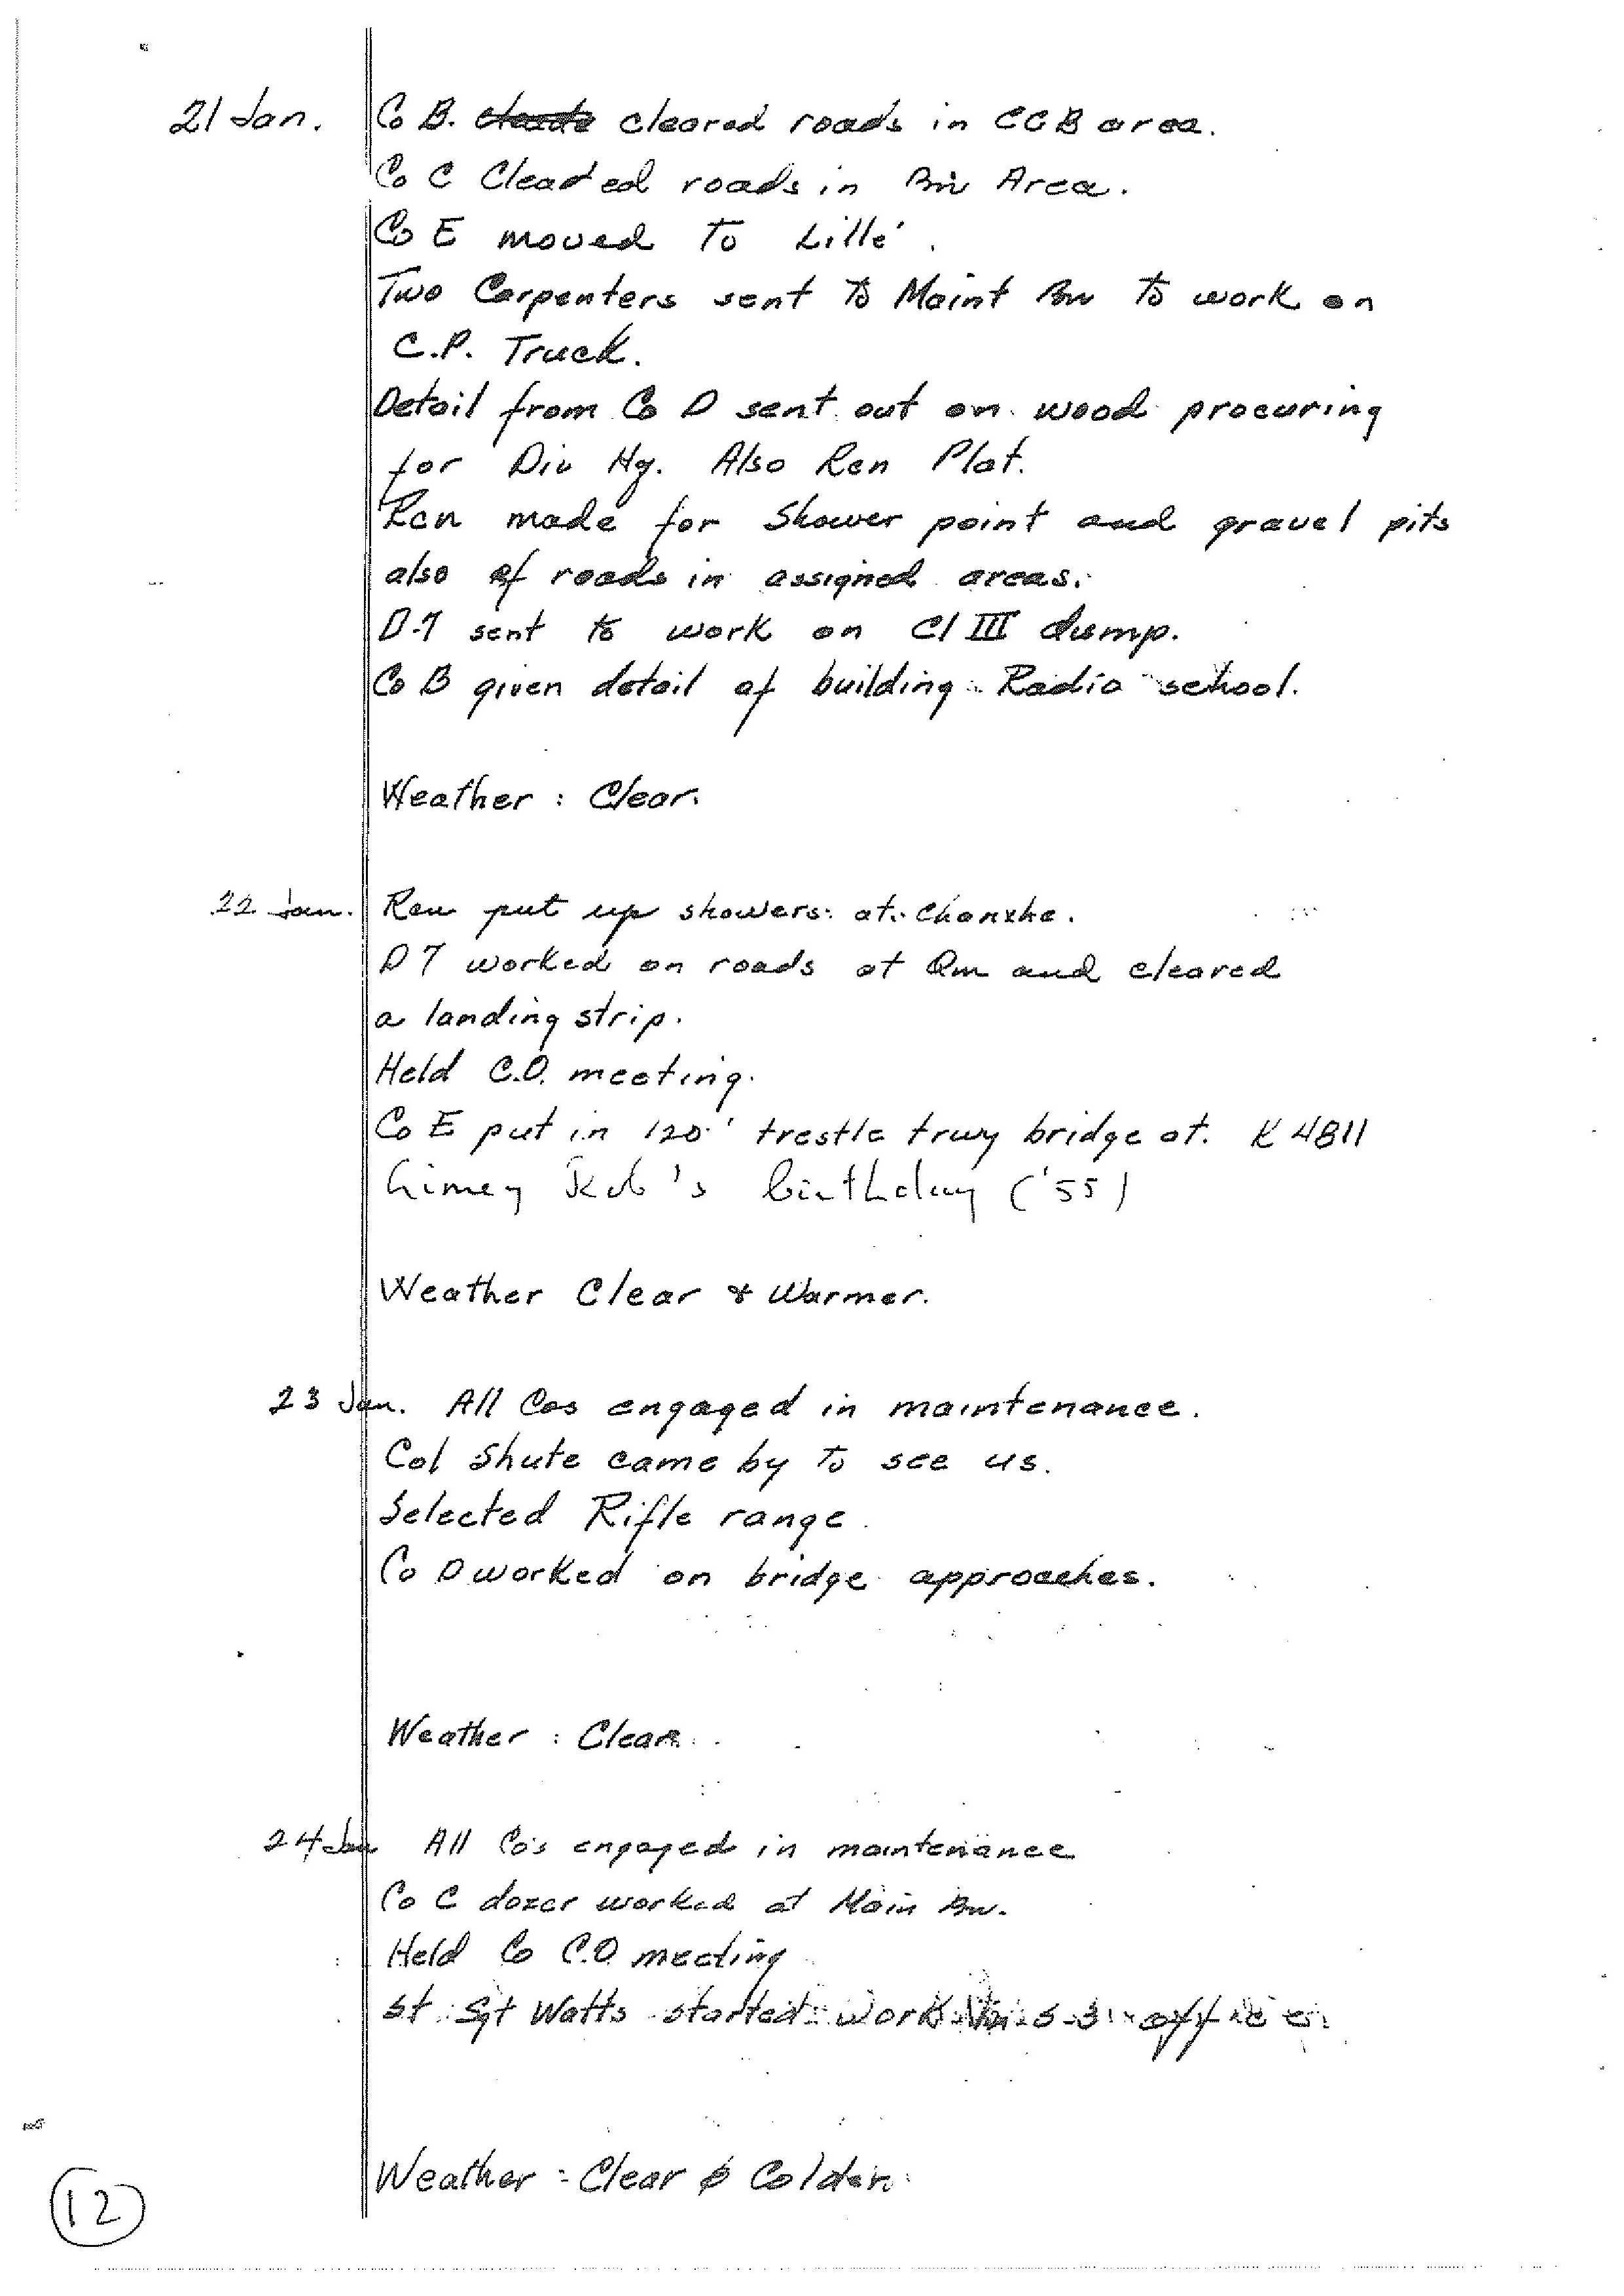 21 Jan. Co B. cleared roads in CCB area.
Co C Cleared roads in Bn Area.
Co E moved to Lillé.
Two Carpenters sent to Maint Bn to work on
C.P. Truck.
Detail from Co D sent out on wood procuring
for Div Hq. Also Rcn Plat.
Rcn made for Shower point and gravel pits
also of roads in assigned areas.
D-7 sent to work on Cl III dump.
Co B given detail of building Radio school.
Weather : Clear.
22 Jan. Rcn put up showers at
D 7 worked on roads at Qm and cleared
a landing strip.
Held C.O. meeting.
Co E put in 120' trestle trwy bridge at. K 4811
birthday ('55)
Weather Clear & Warmer.
23 Jan. All Cos engaged in maintenance.
Col Shute came by to see us.
Selected Rifle range.
Co D worked on bridge approaches.
Weather : Clear.
24 Jan All Co's engaged in maintenance
Co C dozer worked at Main Bn.
Held Co C.O meeting
St Sgt Watts started work in S-3 office.
Weather : Clear & Colder.
12